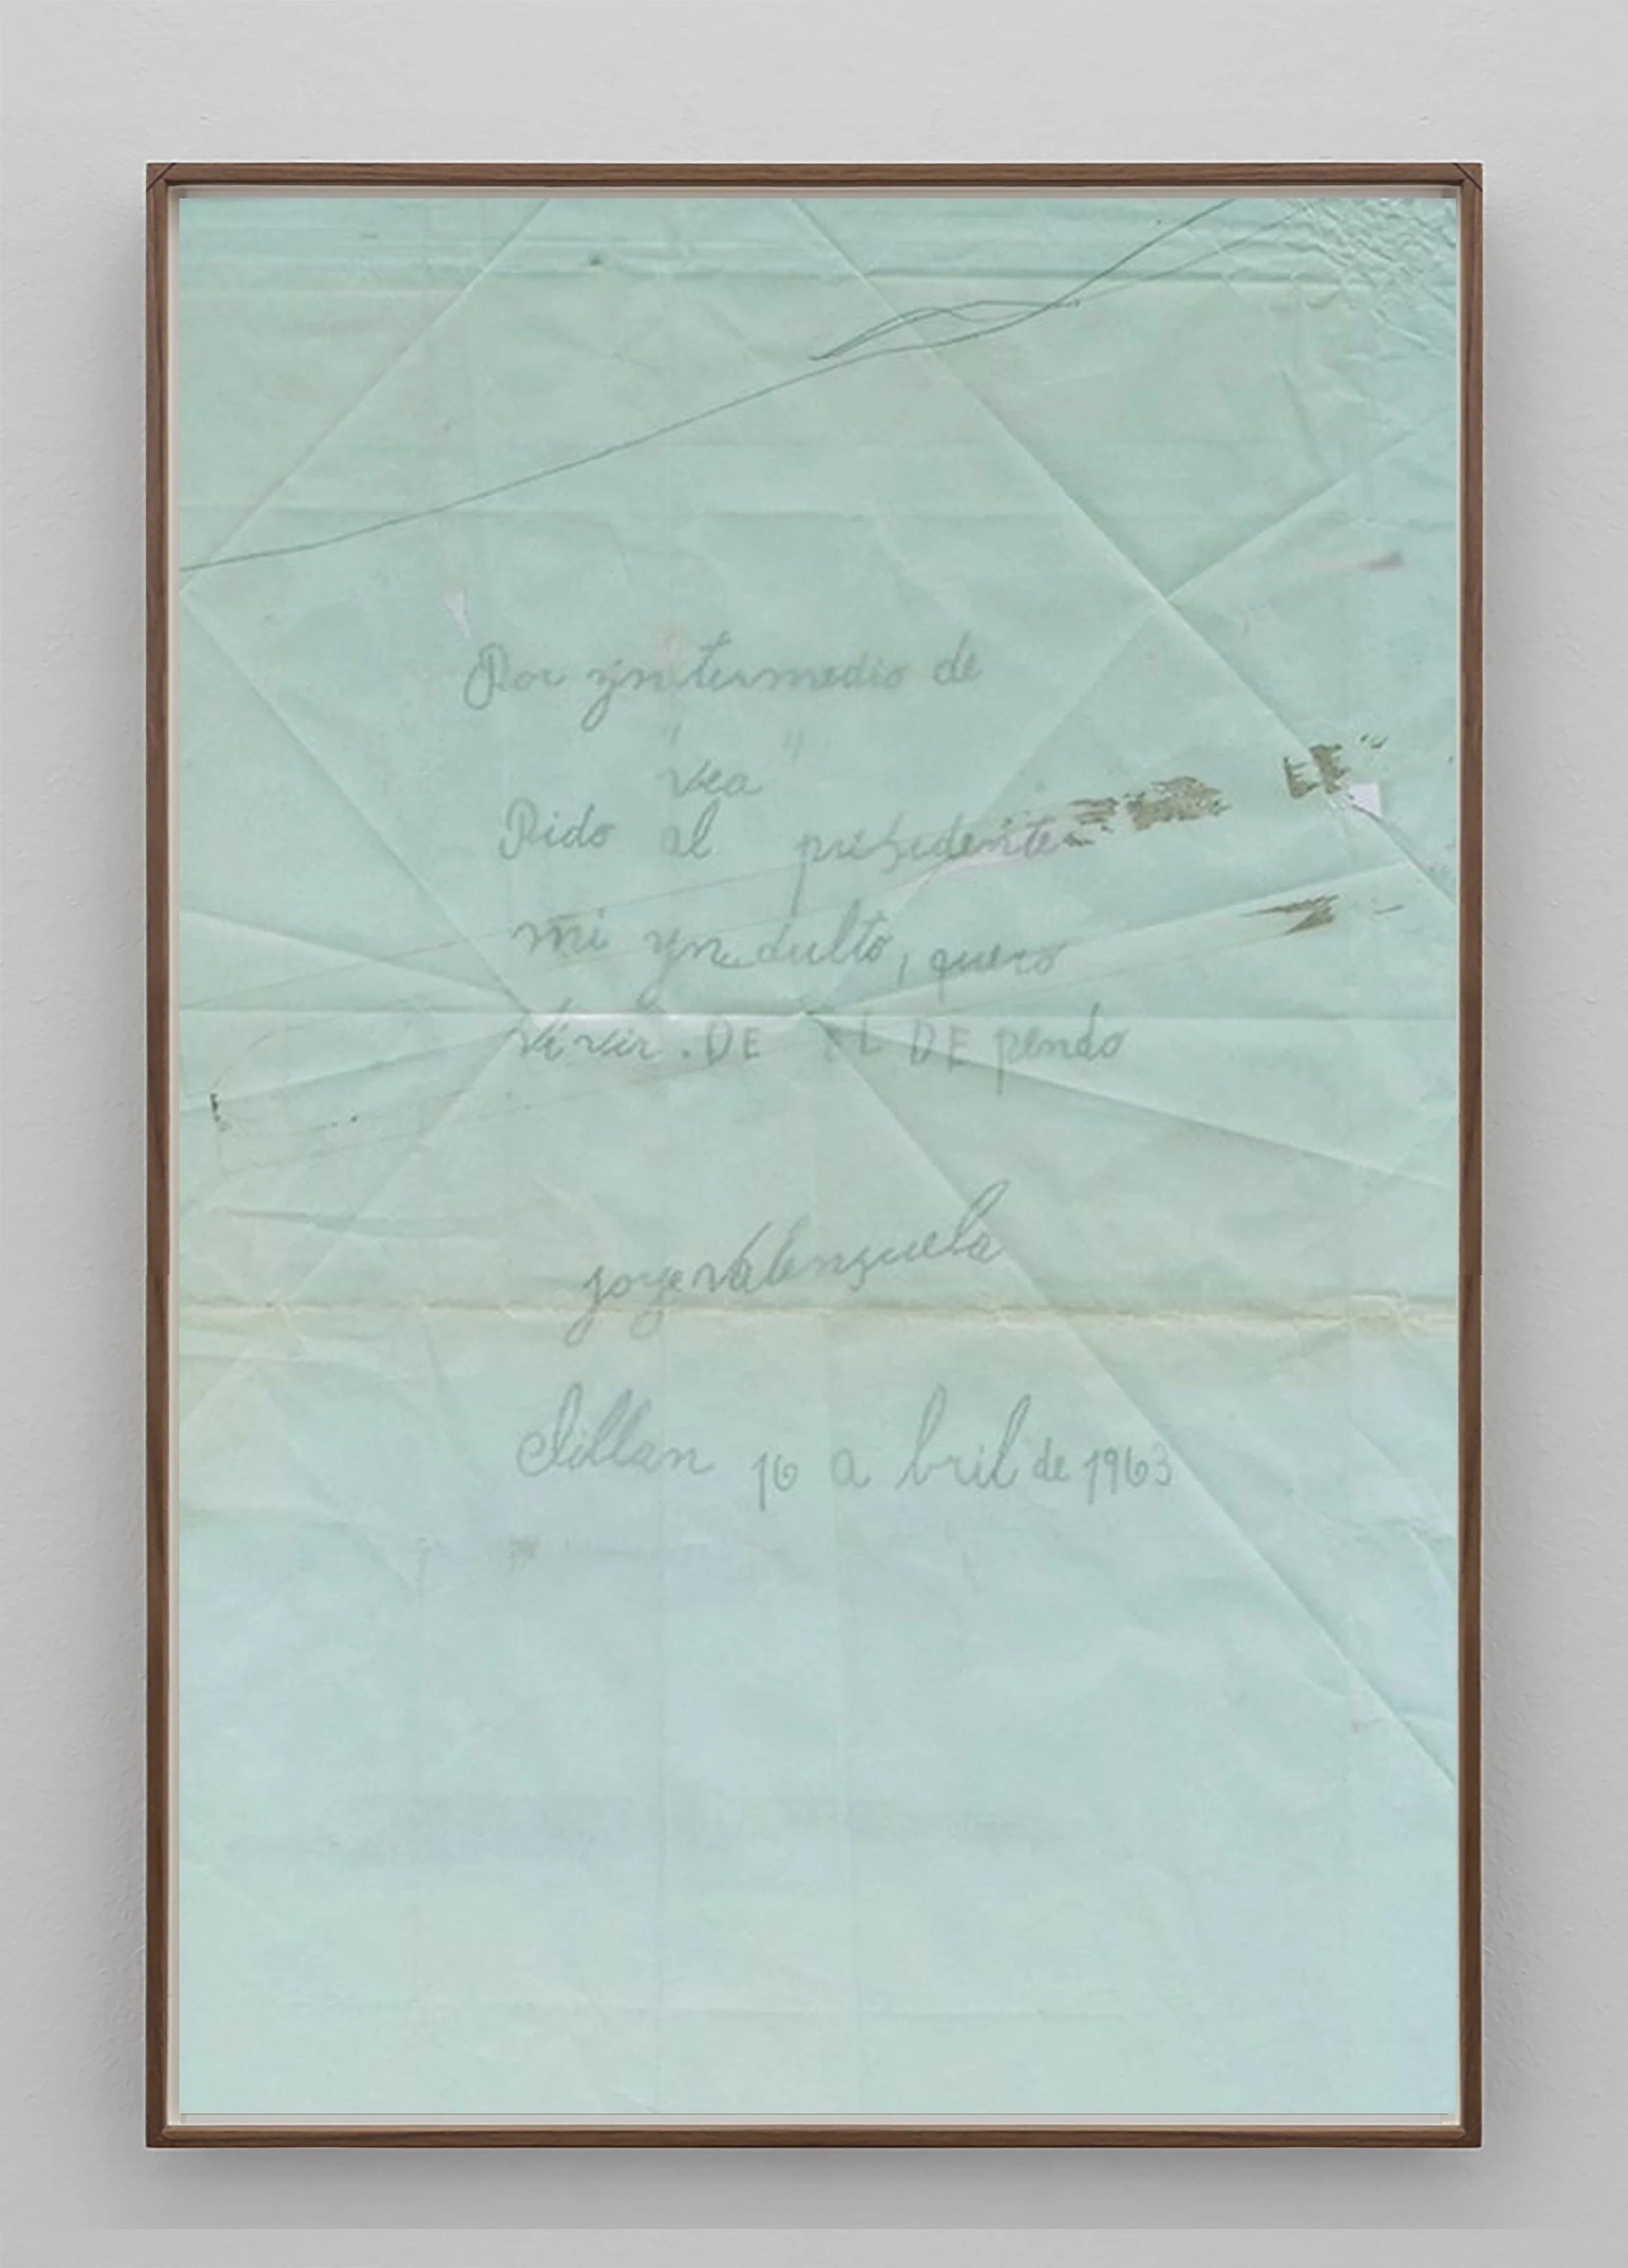 Por yntermedio de
" vea "
Pido al presidente
mi yndulto, quero
vivir. DE EL DE pendo
jorge valenzuela
chillan 16 a bril de 1963